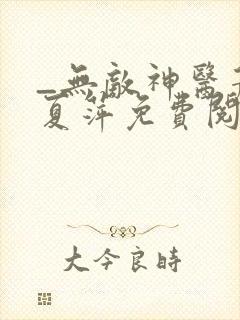 _無敵神醫
夏萍免費閱
大今良時